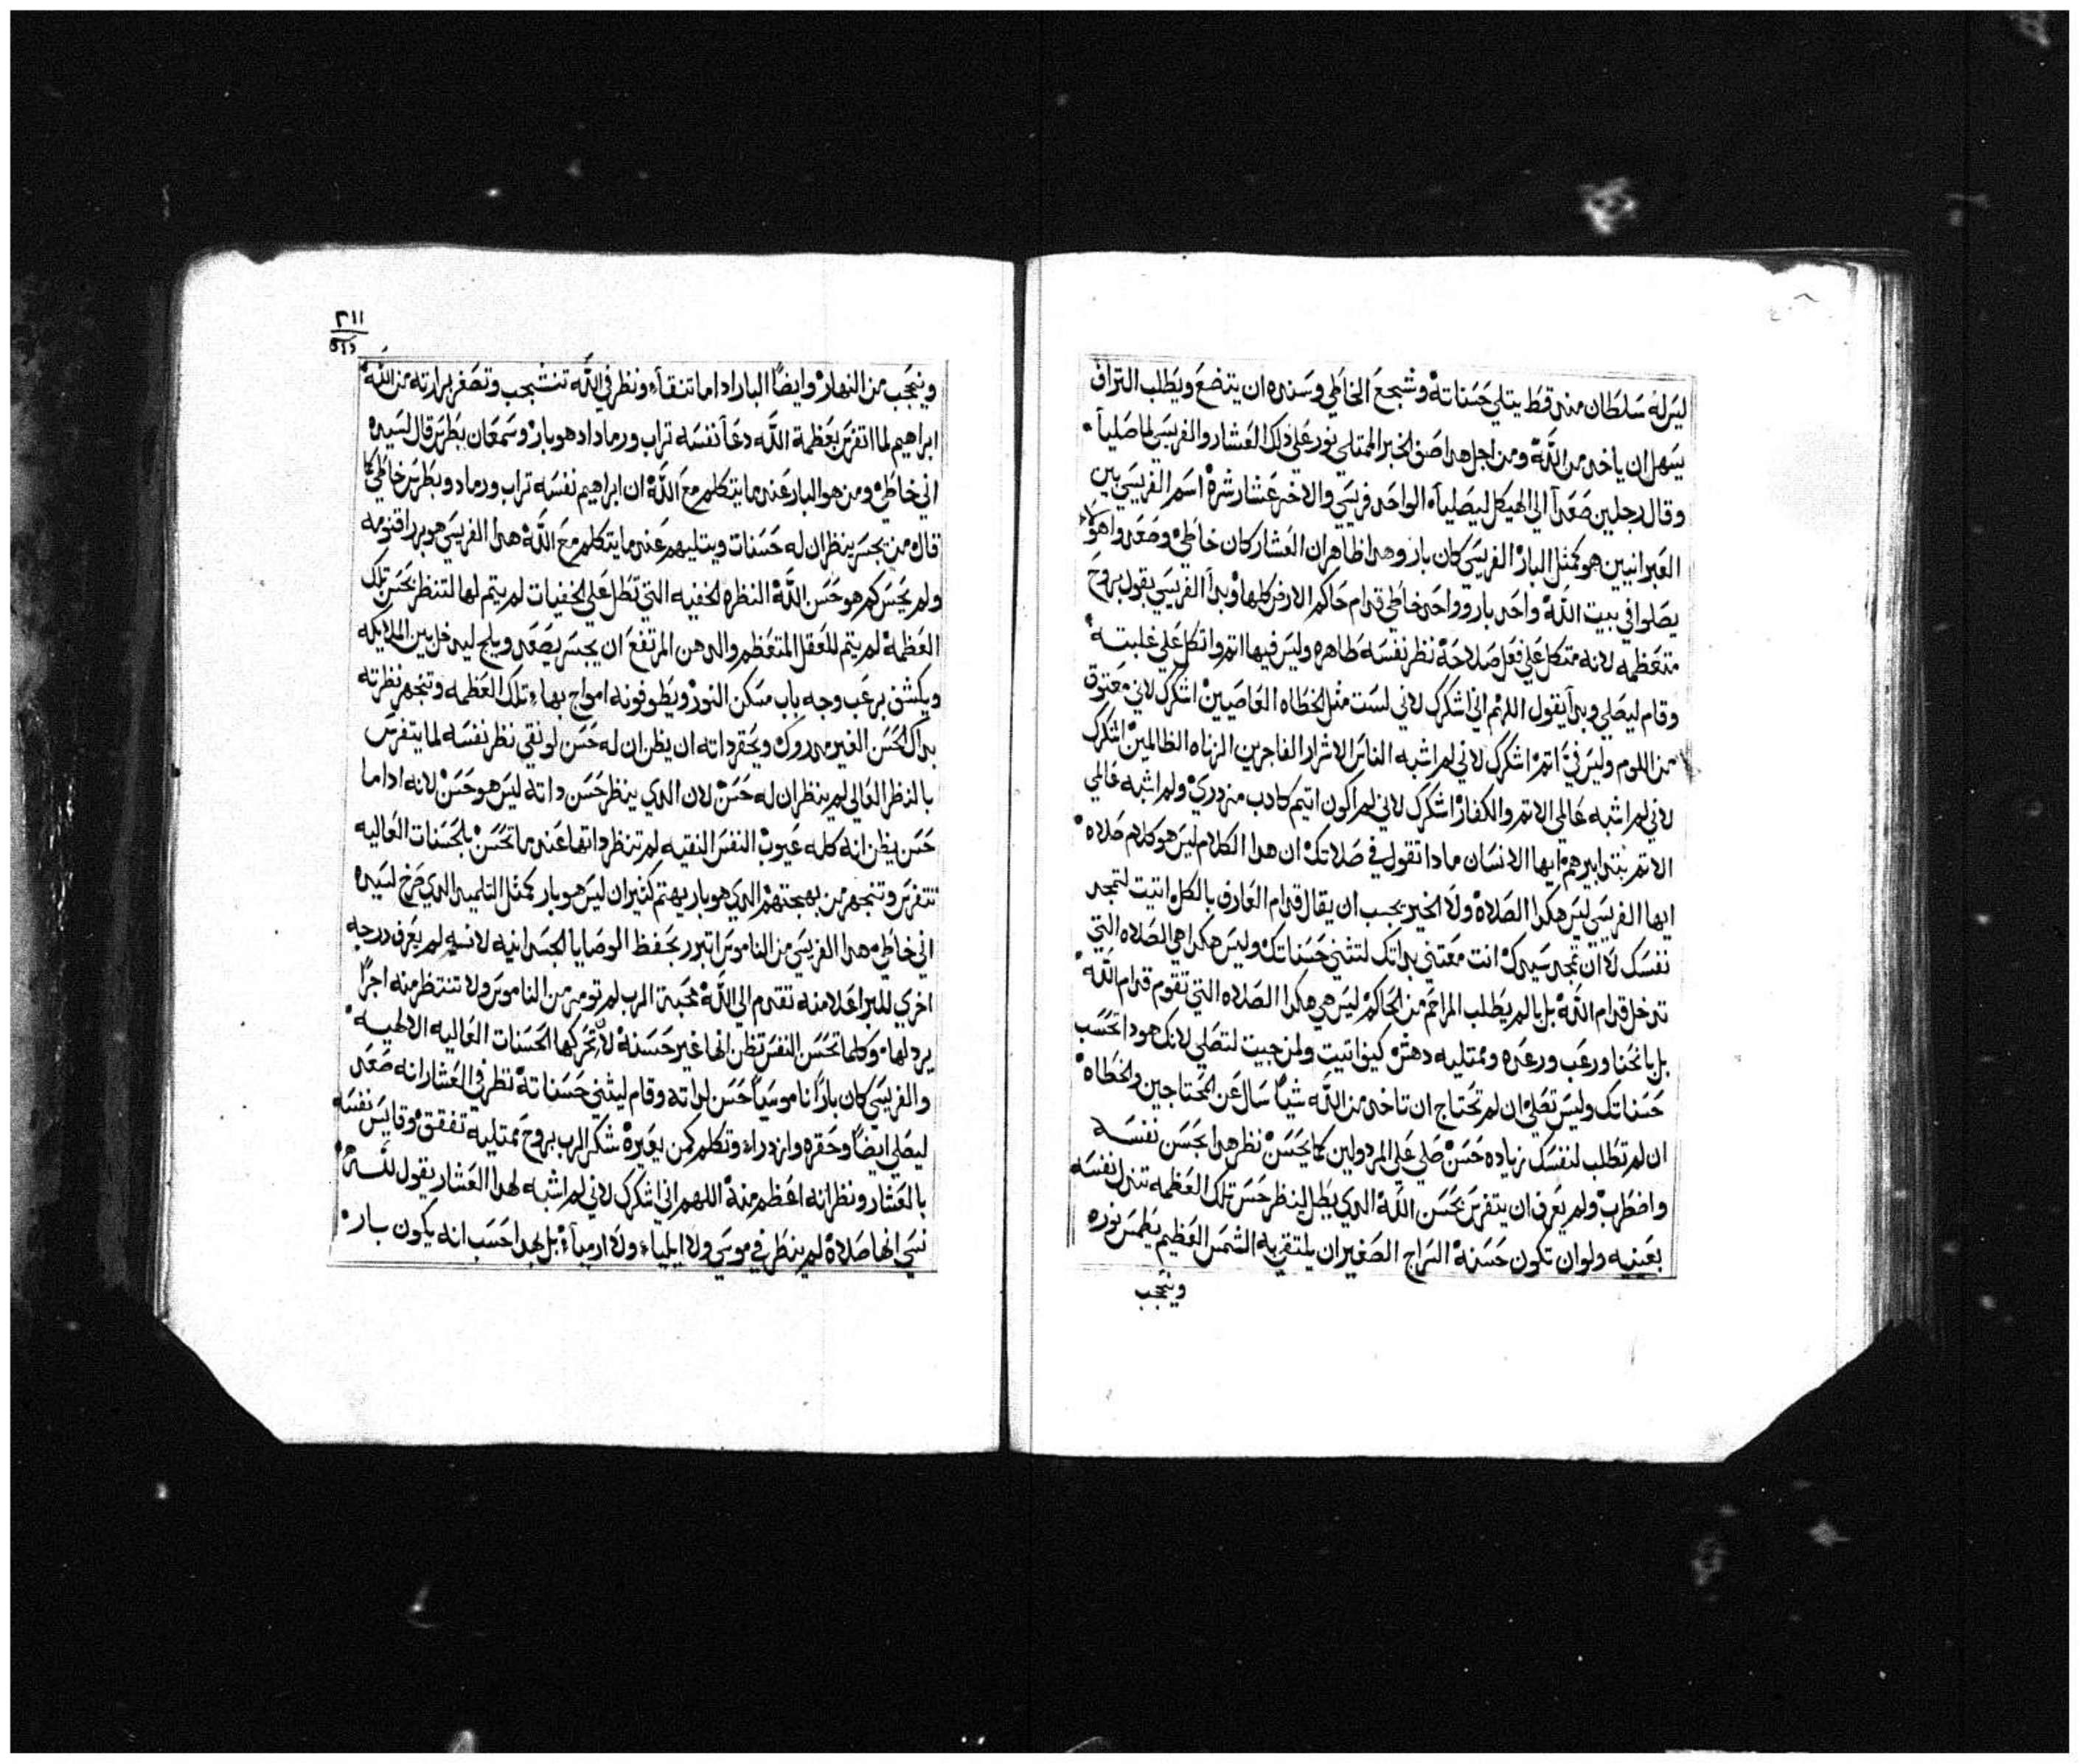 ليس له سلطان منه قط يتلي حسناته وشجع الخاطي وسنده ان يتضع ويطلب التراف
يسهل ان ياخد من الله ومن اجل هدا صنف الخبر الممتلي نور علي دلك العشار والفريسي لما صليا
وقال رجلين صعدا الي الهيكل ليصليا الواحد فريسي والاخر عشار شره اسم الفريسي بين
العبرانيين هو كمثل البار الفريسي كان بار وهدا ظاهر ان العشار كان خاطي وصعدوا هولاء
يصلوا في بيت الله واحد بار وواحد خاطي قدام حاكم الارض كلها وبدا الفريسي يقول بروح
متعظمه لانه متكل علي فعل صلاحه نظر نفسه طاهره وليس فيها اتم واتكل علي غلبته
وقام ليصلي وبدا يقول اللهم اني اشكرك لاني لست مثل الخطاه العاصيين اشكرك لاني معتوق
من اللوم وليس في اتم اشكرك لاني لم اشبه الناس الاشرار الفاجرين الزناه الظالمين اشكرك
لاني لم اشبه عالمي الاتم والكفار اشكرك لاني لم اكون اتيم كادب مزدري ولم اشبه فالمي
الاتم بتدابيرهم ايها الانسان مادا تقول في صلاتك ان هدا الكلام ليس هو كلام صلاه
ايها الفريسي ليس هكدا الصلاه ولا الخير يجب ان يقال قدام العارف بالكل اتيت لتمجد
نفسك لا ان تمجد سيدك انت معتني بداتك لتثني حسناتك وليس هكدا هي الصلاه التي
تدخل قدام الله بل بالم يطلب المراحم من الحاكم ليس هي هكدا الصلاه التي تقوم قدام الله
بل بانحنا ورعب ورعده وممتليه دهش كيف اتيت ولمن جيت لتصلي لانك هودا تحسب
حسناتك وليس تصلي ان لم تحتاج ان تاخد من الله شيا سال عن المحتاجين والخطاه
ان لم تطلب لنفسك زياده حسن صلي علي المردولين كما يحسن نظر هدا بحسن نفسه
واضطرب ولم يعرف ان يتفرس بحسن الله الدي يطل لينظر حسن تلك العظمه تتدل نفسه
بعينيه ولو ان تكون حسنة السراج الصغير ان يلتقي به الشمس العظيم يطمس نوره
ويتحجب
٢١١
ويتحجب من النهار وايضا البار ادا ما تنقا ونظر في الله تنشجب وتصغر برارته من الله
ابراهيم لما اتفرس بعظمة الله دعا نفسه تراب ورماد اد هو بار وسمعان بطرس قال لسيده
اني خاطي ومن هو البار عندما يتكلم مع الله ان ابراهيم نفسه تراب ورماد وبطرس خاطي كما
قال من يجسر ينظر ان له حسنات ويتليهم عندما يتكلم مع الله هدا الفريسي هو برر اقنومه
ولم يحس كم هو حسن الله النظره الخفيه التي تطل علي الخفيات لم يتم لها لتنظر بحسن تلك
العظمه لم يتم للعقل المتعظم والدهن المرتفع ان يجسر يصعد ويلج ليدخل بين الملايكه
ويكشف برعب وجه باب مسكن النور ويطوفونه امواج بهاء تلك العظمه وتبهر نظرته
بداك الحسن الغير مدروك ويحقر داته ان يظن ان له حسن لو نقي نظر نفسه لما يتفرس
بالنظر العالي لم ينظر ان له حسن لان الدي ينظر حسن داته ليس هو حسن لانه ادا ما
حسن يظن انه كله عيوب النفس النقيه لم تنظر داتها عندما تحسن بلحسنات العاليه
تتفرس وتنبهر من بهجتهم الدي هو بار يهتم كتير ان ليس هو بار كمثل التلميد الدي صرخ لسيده
اني خاطي هدا الفريسي من الناموس اتبرر بحفظ الوصايا الجسدانيه لانسه لم يعرف درجه
اخري للبر اعلا منه تقدم الي الله محبة الرب لم تومر من الناموس ولا تنتظر منه اجرا
يرد لها وكلما تحسن النفس تظن انها غير حسنه لان تحركها الحسنات العاليه الالهيه
والفريسي كان بارا ناموسيا حسن لداته وقام ليثني حسناته نظر في العشار انه صعد
ليصلي ايضا وحقره وازدراه وتكلم كمن يعيره شكر الرب بروح ممتليه تفقق وقايس نفسه
بالعشار ونظر انه اعظم منه اللهم اني اشكرك لاني لم اشبه لهدا العشار يقول لله
نسي انها صلاه لم ينظر في موسي ولا ايلياء ولا ارمياء بل بهدا حسب انه يكون بار